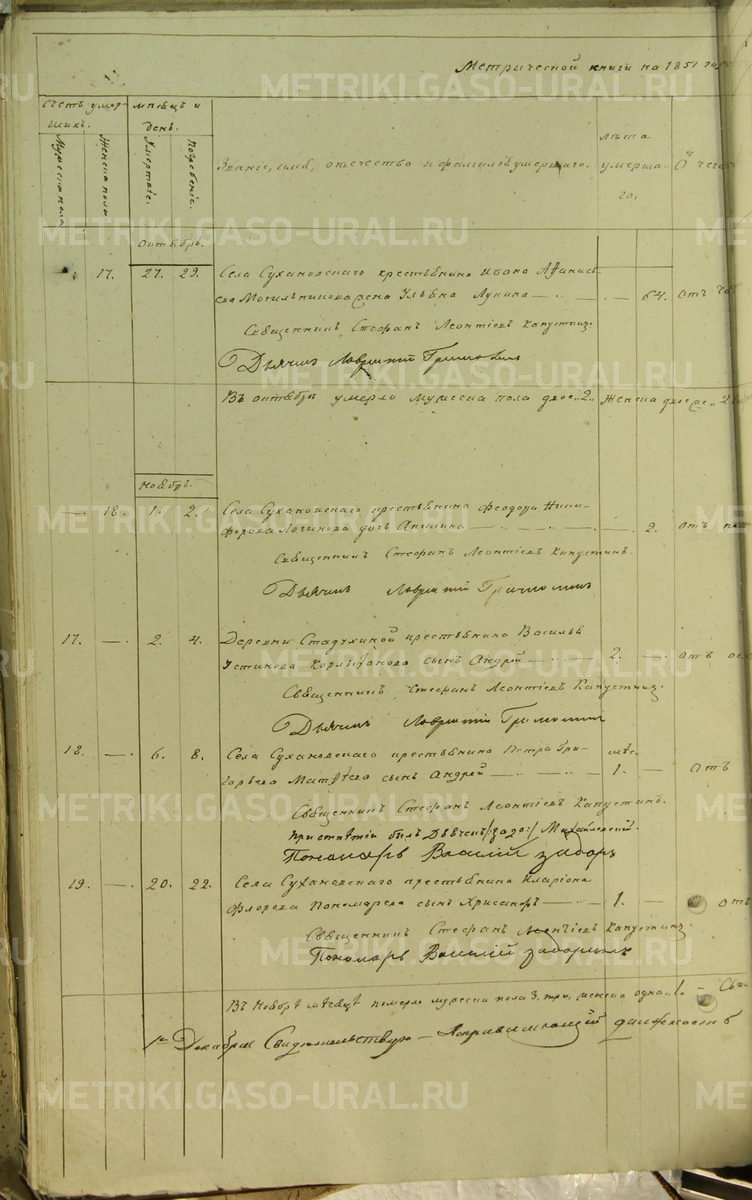 Метрической книги на 1851 годъ
Счетъ умершихъ.
Мужеска пола
Женска пола.
Мѣсяцъ и день.
Умертвіе.
Погребеніе.
Званіе, имя, отчество и фамилія умершаго.
Лѣта умершаго.
Отъ чего
Октябрь.
17. 27. 29. Села Сухановскаго крестьянина Ивана Аѳанась
ева Могильникова жена Ульяна Лукина — 64. Отъ
Священникъ Стефанъ Леонтіевъ Капустинъ.
Дьячекъ Лаврентій
Въ октябрѣ умерло мужеска пола двое „2„ Женска двое же „2
Ноябрь.
— 18. 1. 2. Села Сухановскаго крестьянина Феодора Ники-
форова Логинова дочь Акилина — 2. отъ
Священникъ Стефанъ Леонтіевъ Капустинъ.
Дьячекъ Лаврентій
17. — 2. 4. Деревни Стадухиной крестьянина Василья
Устинова сынъ Андрей — 2. — отъ
Священникъ Стефанъ Леонтіевъ Капустинъ.
Дьячекъ Лаврентій
18. — 6. 8. Села Сухановскаго крестьянина Петра Гри-
горьева Матѳеева сынъ Андрей — 1. — отъ
Священникъ Стефанъ Леонтіевъ Капустинъ.
Михайловскій.
Пономарь Василій
19. — 20. 22. Села Сухановскаго крестьянина Иларіона
Флорова Пономарева сынъ Хрисанфъ — 1. — отъ
Священникъ Стефанъ Леонтіевъ Капустинъ.
Пономарь Василій
Въ Ноябрѣ мѣсяцѣ померло мужеска пола 3. три, женска одна 1. — Свя-
Декабря Свидѣтельствую — должность
METRIKI.GASO-URAL.RU